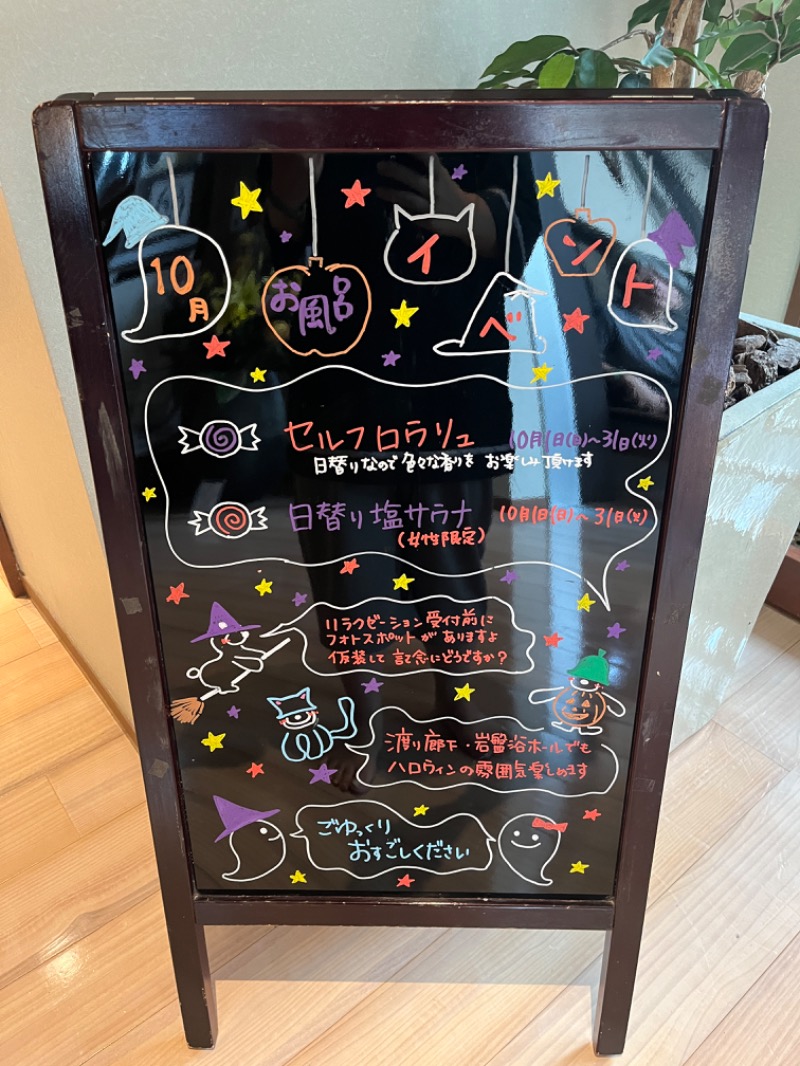 10月
お風呂
イベント
セルフロウリュ 10月1日(日)〜31日(火)
日替りなので色々な香りをお楽しみ頂けます
日替り塩サウナ 10月1日(日)〜31日(火)
(女性限定)
リラクゼーション受付前に
フォトスポットがありますよ
仮装して記念にどうですか?
渡り廊下・岩盤浴ホールでも
ハロウィンの雰囲気楽しめます
ごゆっくり
おすごしください